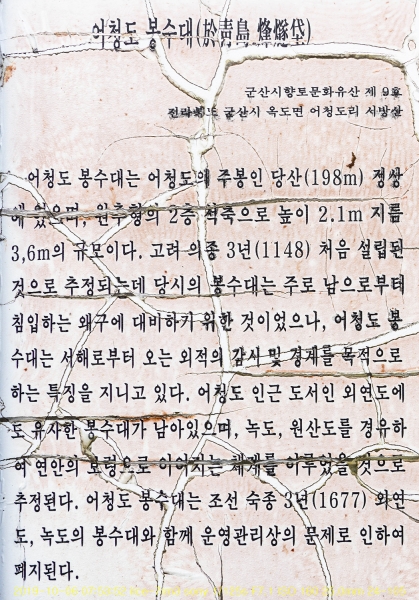 어청도 봉수대(於靑島 烽燧岱)
군산시향토문화유산 제 9호
전라북도 군산시 옥도면 어청도리 서방산
어청도 봉수대는 어청도의 주봉인 당산(198m) 정상
에 있으며, 원추형의 2층 석축으로 높이 2.1m 지름
3,6m의 규모이다. 고려 의종 3년(1148) 처음 설립된
것으로 추정되는데 당시의 봉수대는 주로 남으로부터
침입하는 왜구에 대비하기 위한 것이었으나, 어청도 봉
수대는 서해로부터 오는 외적의 감시 및 경계를 목적으로
하는 특징을 지니고 있다. 어청도 인근 도서인 외연도에
도 유사한 봉수대가 남아있으며, 녹도, 원산도를 경유하
여 연안의 보령으로 이어지는 체계를 이루었을 것으로
추정된다. 어청도 봉수대는 조선 숙종 3년(1677) 외연
도, 녹도의 봉수대와 함께 운영관리상의 문제로 인하여
폐지된다.